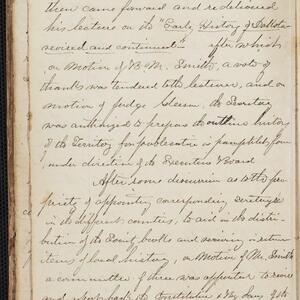 then came forward and redelivered
his lecture on the "Early History of Dakota
revised and continued" after which
on Motion of B. M. Smith, a vote of
thanks was tendered to the lecturer, and on
motion of Judge the Secretary
was authorized to prepare the outline history
of the Territory for publication in pamphlet form,
under direction of the Executive Board
After some discussion as to the pro-
priety of appointing corresponding secretaries
in the different counties, to aid in the distri-
bution of the books and receiving return
items of local history, on Motion of Mr. Smith
a committee of three was appointed to revise
and report back the Constitution & By Laws of the